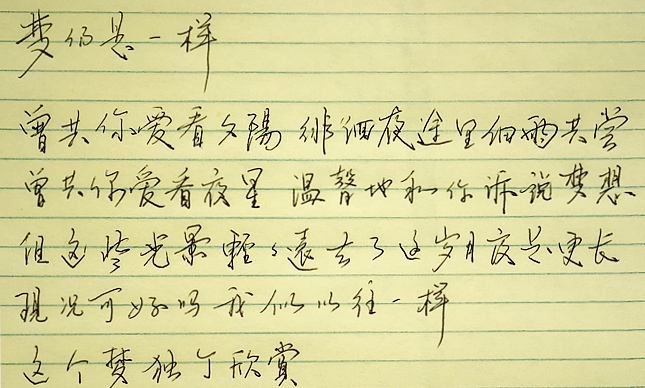 梦仍是一样
曾共你爱看夕陽 徘徊夜途里细雨共赏
曾共你爱看夜星 温馨地和你诉说梦想
但这些光景輕々遠去了这岁月夜是更长
现况可好吗我似以往一样
这个梦独个欣賞